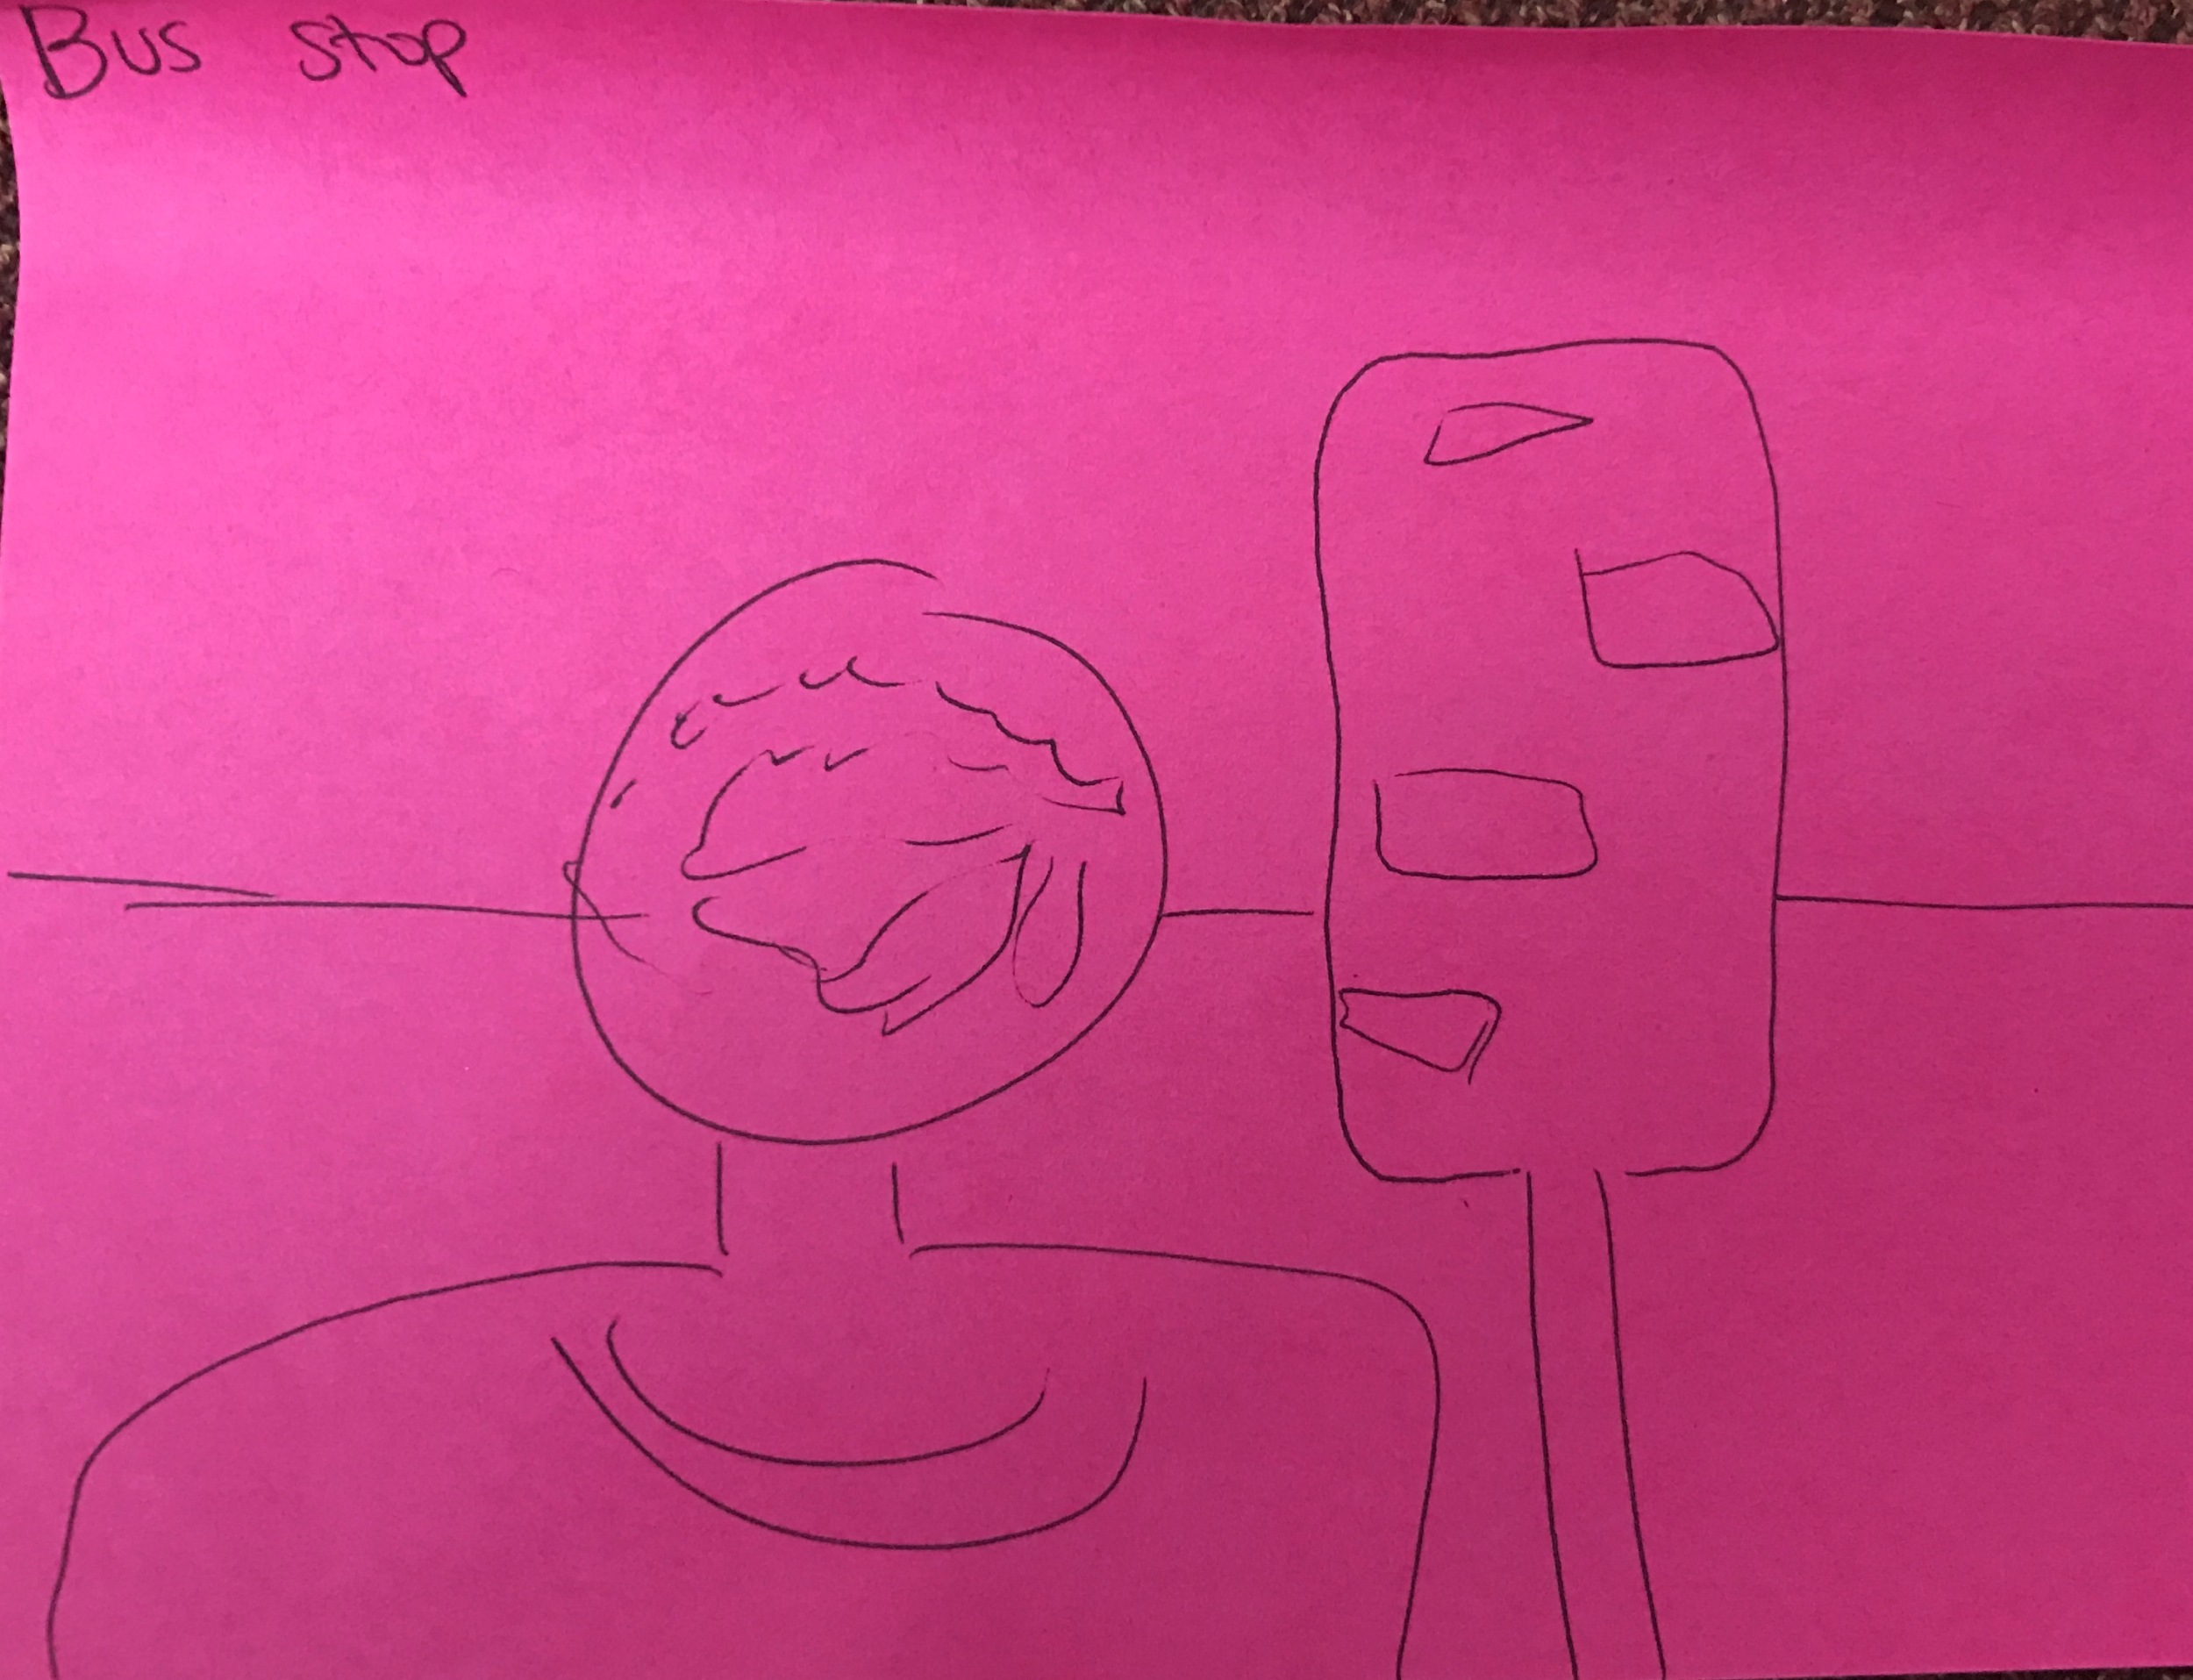 Bus stop